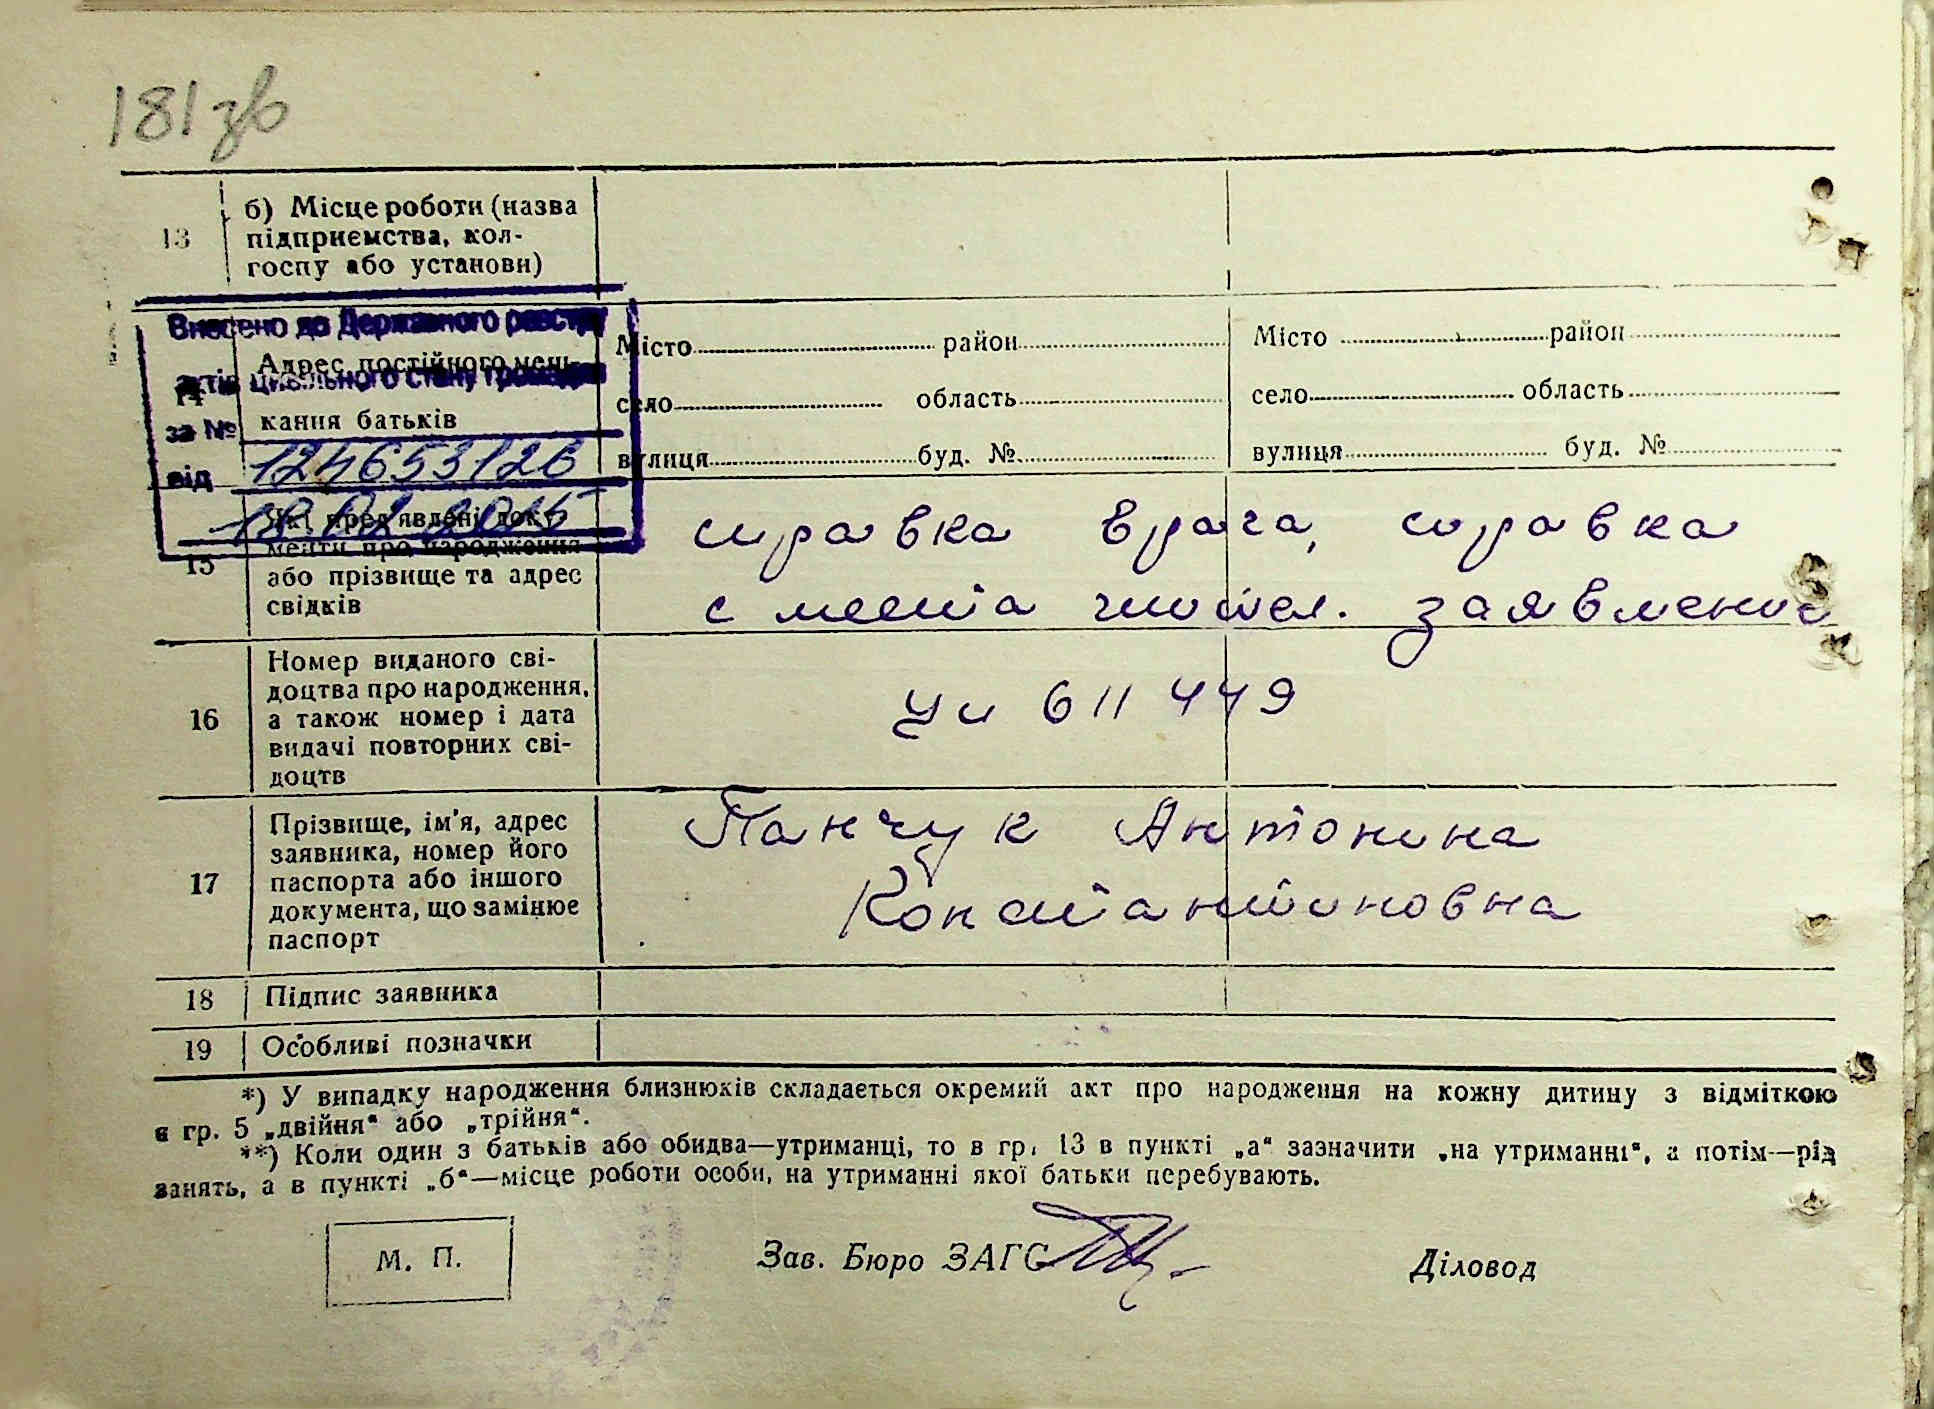 181 зв
13 б) Місце роботи (назва
підприємства, кол-
госпу або установи)
Внесено до Державного реєстру
актів цивільного стану громадян
за №
124653126
від
14 Адрес постійного меш-
кання батьків
Місто район
село область
вулиця буд. №
Місто район
село область
вулиця буд. №
15 Які пред'явлені доку-
менти про народження
або прізвище та адрес
свідків
справка врача, справка
с места жител. заявление
16 Номер виданого сві-
доцтва про народження,
а також номер і дата
видачі повторних сві-
доцтв
611 449
17 Прізвище, ім'я, адрес
заявника, номер його
паспорта або іншого
документа, що замінює
паспорт
Панчук Антонина
Константиновна
18 Підпис заявника
19 Особливі позначки
*) У випадку народження близнюків складається окремий акт про народження на кожну дитину з відміткою
в гр. 5 „двійня“ або „трійня“.
**) Коли один з батьків або обидва—утриманці, то в гр. 13 в пункті „а“ зазначити „на утриманні“, а потім—рід
занять, а в пункті „б“—місце роботи особи, на утриманні якої батьки перебувають.
М. П.
Зав. Бюро ЗАГС
Діловод